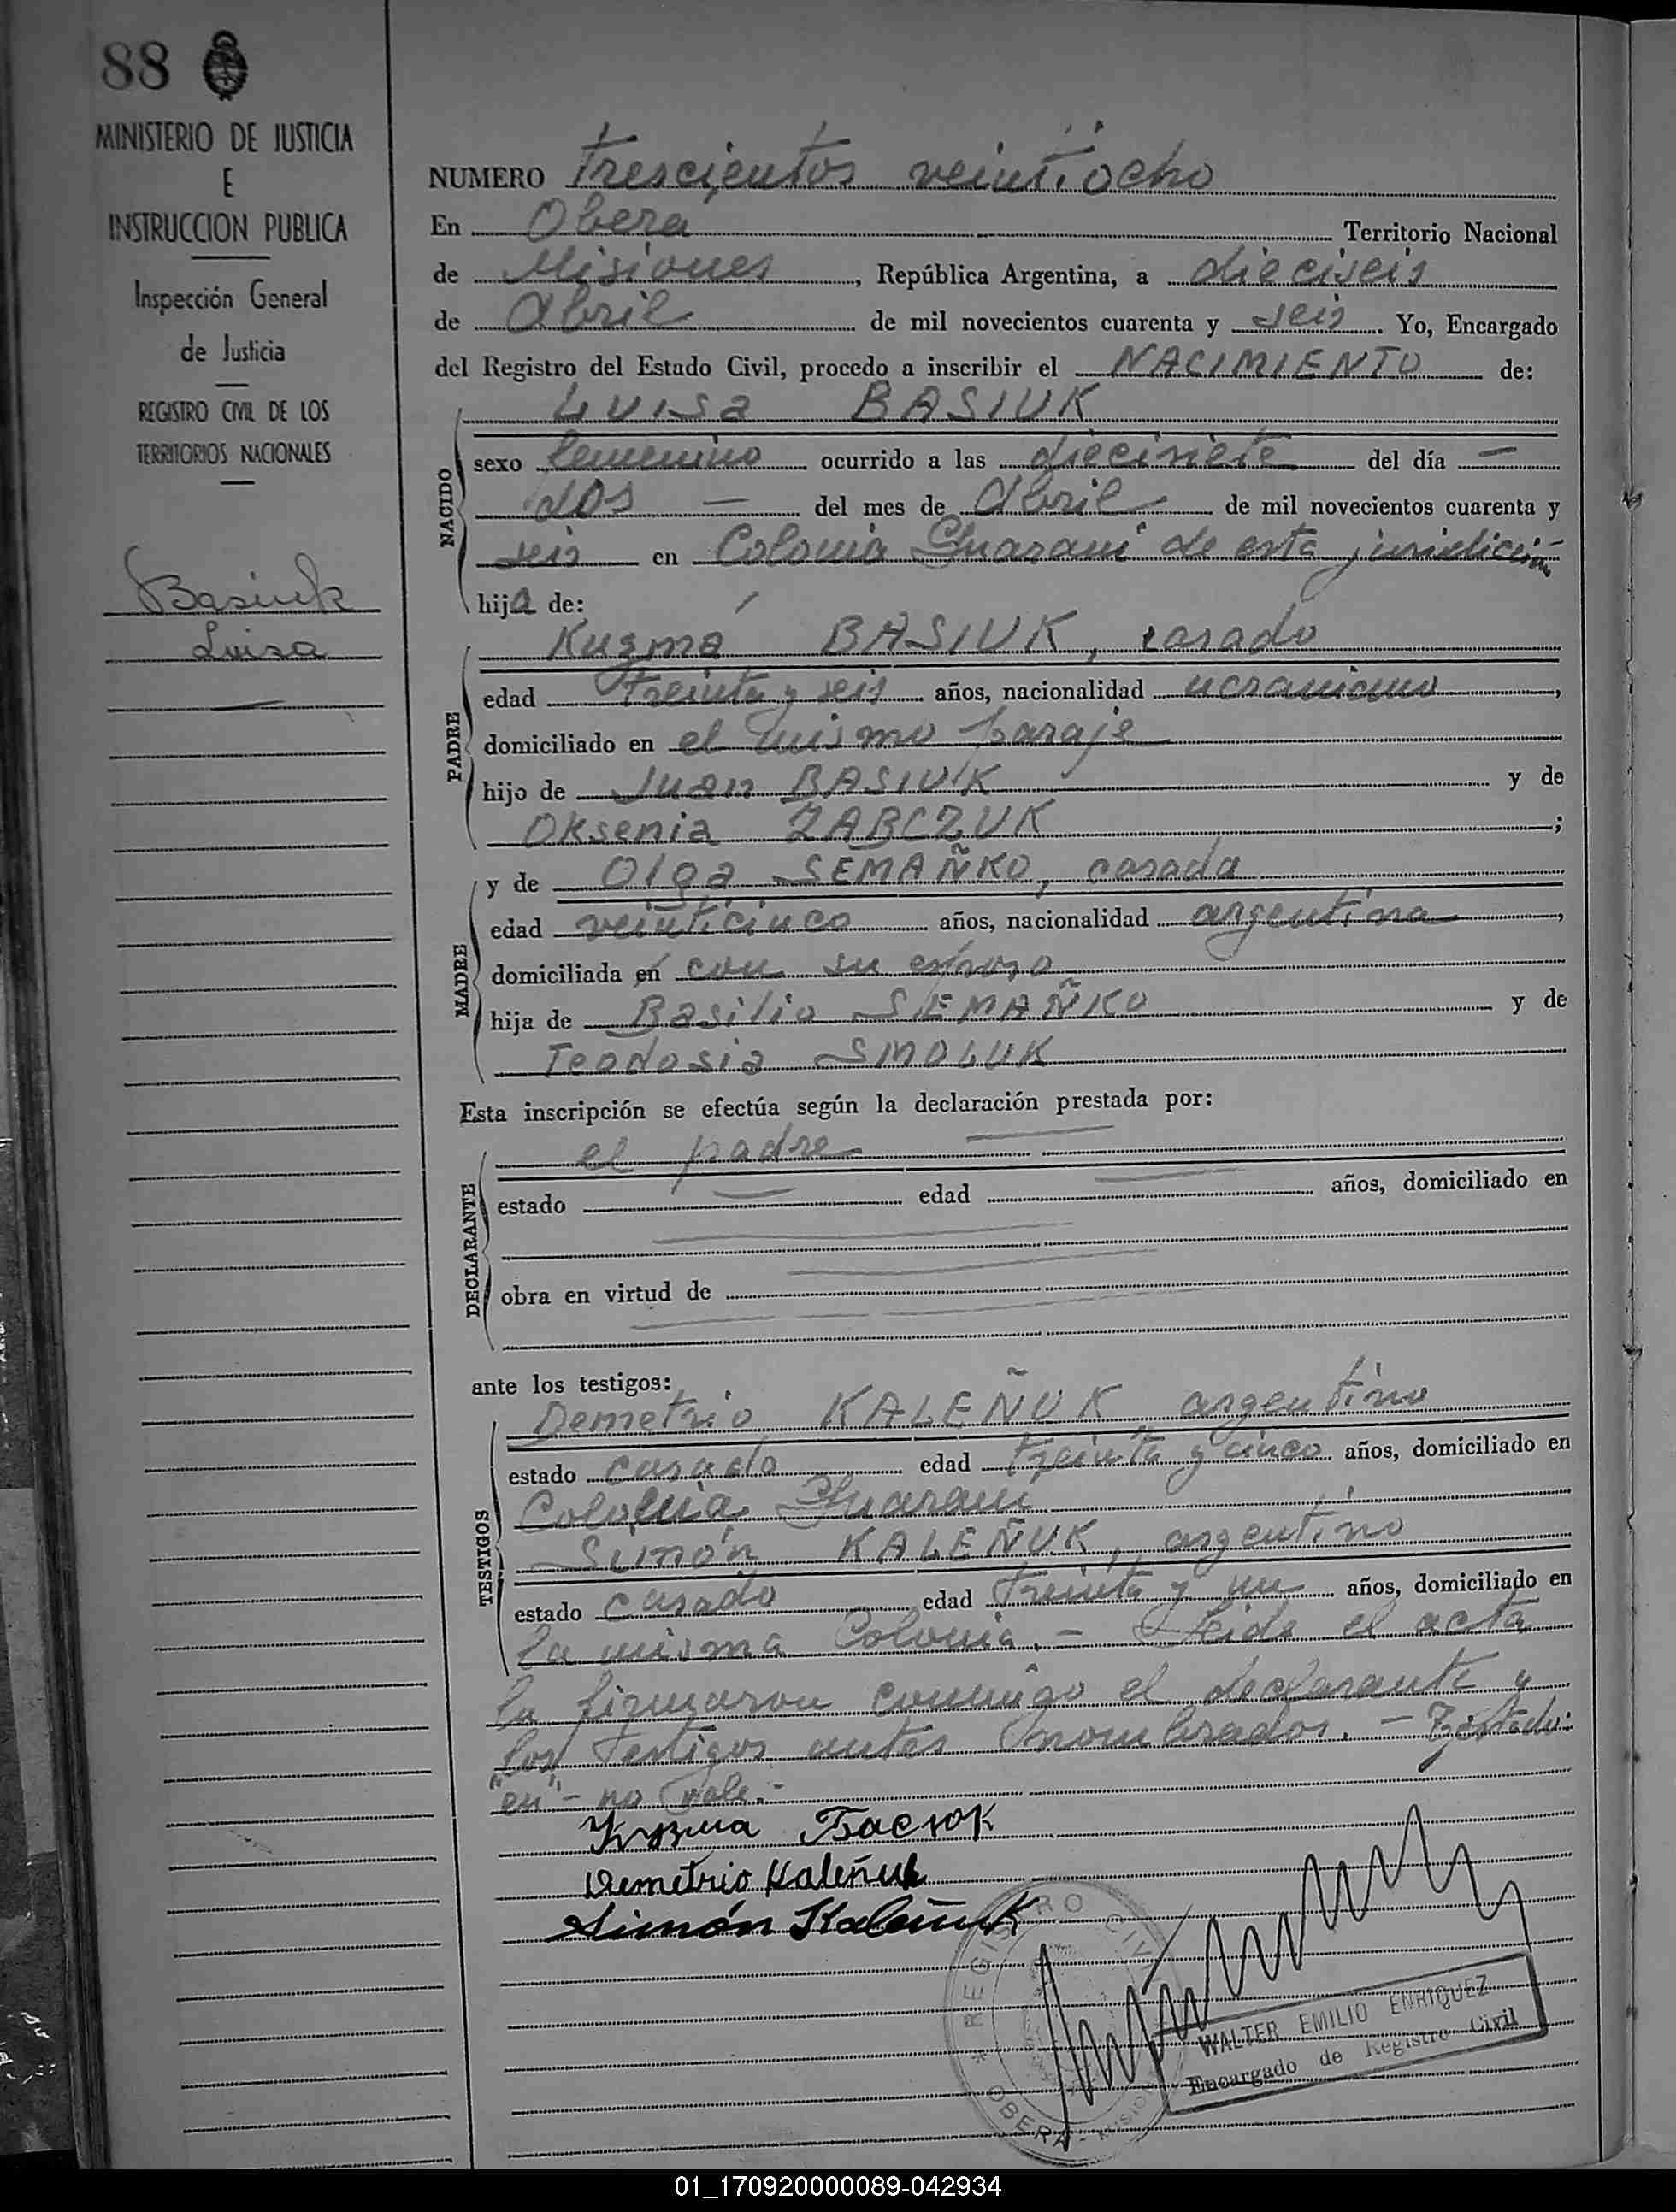 88
MINISTERIO DE JUSTICIA
E
INSTRUCCION PUBLICA
Inspección General
de Justicia
REGISTRO CIVIL DE LOS
TERRITORIOS NACIONALES
Basiuk
Luisa
NUMERO Trescientos veintiocho
En Oberá Territorio Nacional
de Misiones, República Argentina, a dieciseis
de Abril de mil novecientos cuarenta y seis. Yo, Encargado
del Registro del Estado Civil, procedo a inscribir el NACIMIENTO de:
NACIDO
Luisa BASIUK
sexo femenino ocurrido a las diecisiete del día —
dos — del mes de Abril de mil novecientos cuarenta y
seis en Colonia Guaraní de esta jurisdicción
hija de:
PADRE
Kuzma BASIUK, casado
edad treinta y seis años, nacionalidad ucraniano,
domiciliado en el mismo paraje
hijo de Juan BASIUK y de
Oksenia ZABCZUK;
MADRE
y de Olga SEMAÑKO, casada
edad veinticinco años, nacionalidad argentina,
domiciliada en con su esposo
hija de Basilio SEMAÑKO y de
Teodosia SMOLUK
Esta inscripción se efectúa según la declaración prestada por:
DECLARANTE
el padre
estado edad años, domiciliado en
obra en virtud de
ante los testigos:
TESTIGOS
Demetrio KALEÑUK argentino
estado casado edad treinta y cinco años, domiciliado en
Colonia Guaraní
Simón KALEÑUK, argentino
estado casado edad treinta y un años, domiciliado en
la misma Colonia. - Leida el acta
la firmaron conmigo el declarante y
los testigos antes nombrados. - Testado:
"en" - no vale. -
Кузма Басюк
Demetrio Kaleñuk
Simón Kaleñuk
REGISTRO CIVIL
OBERA - MISIONES
WALTER EMILIO ENRIQUEZ
Encargado de Registro Civil
01_170920000089-042934